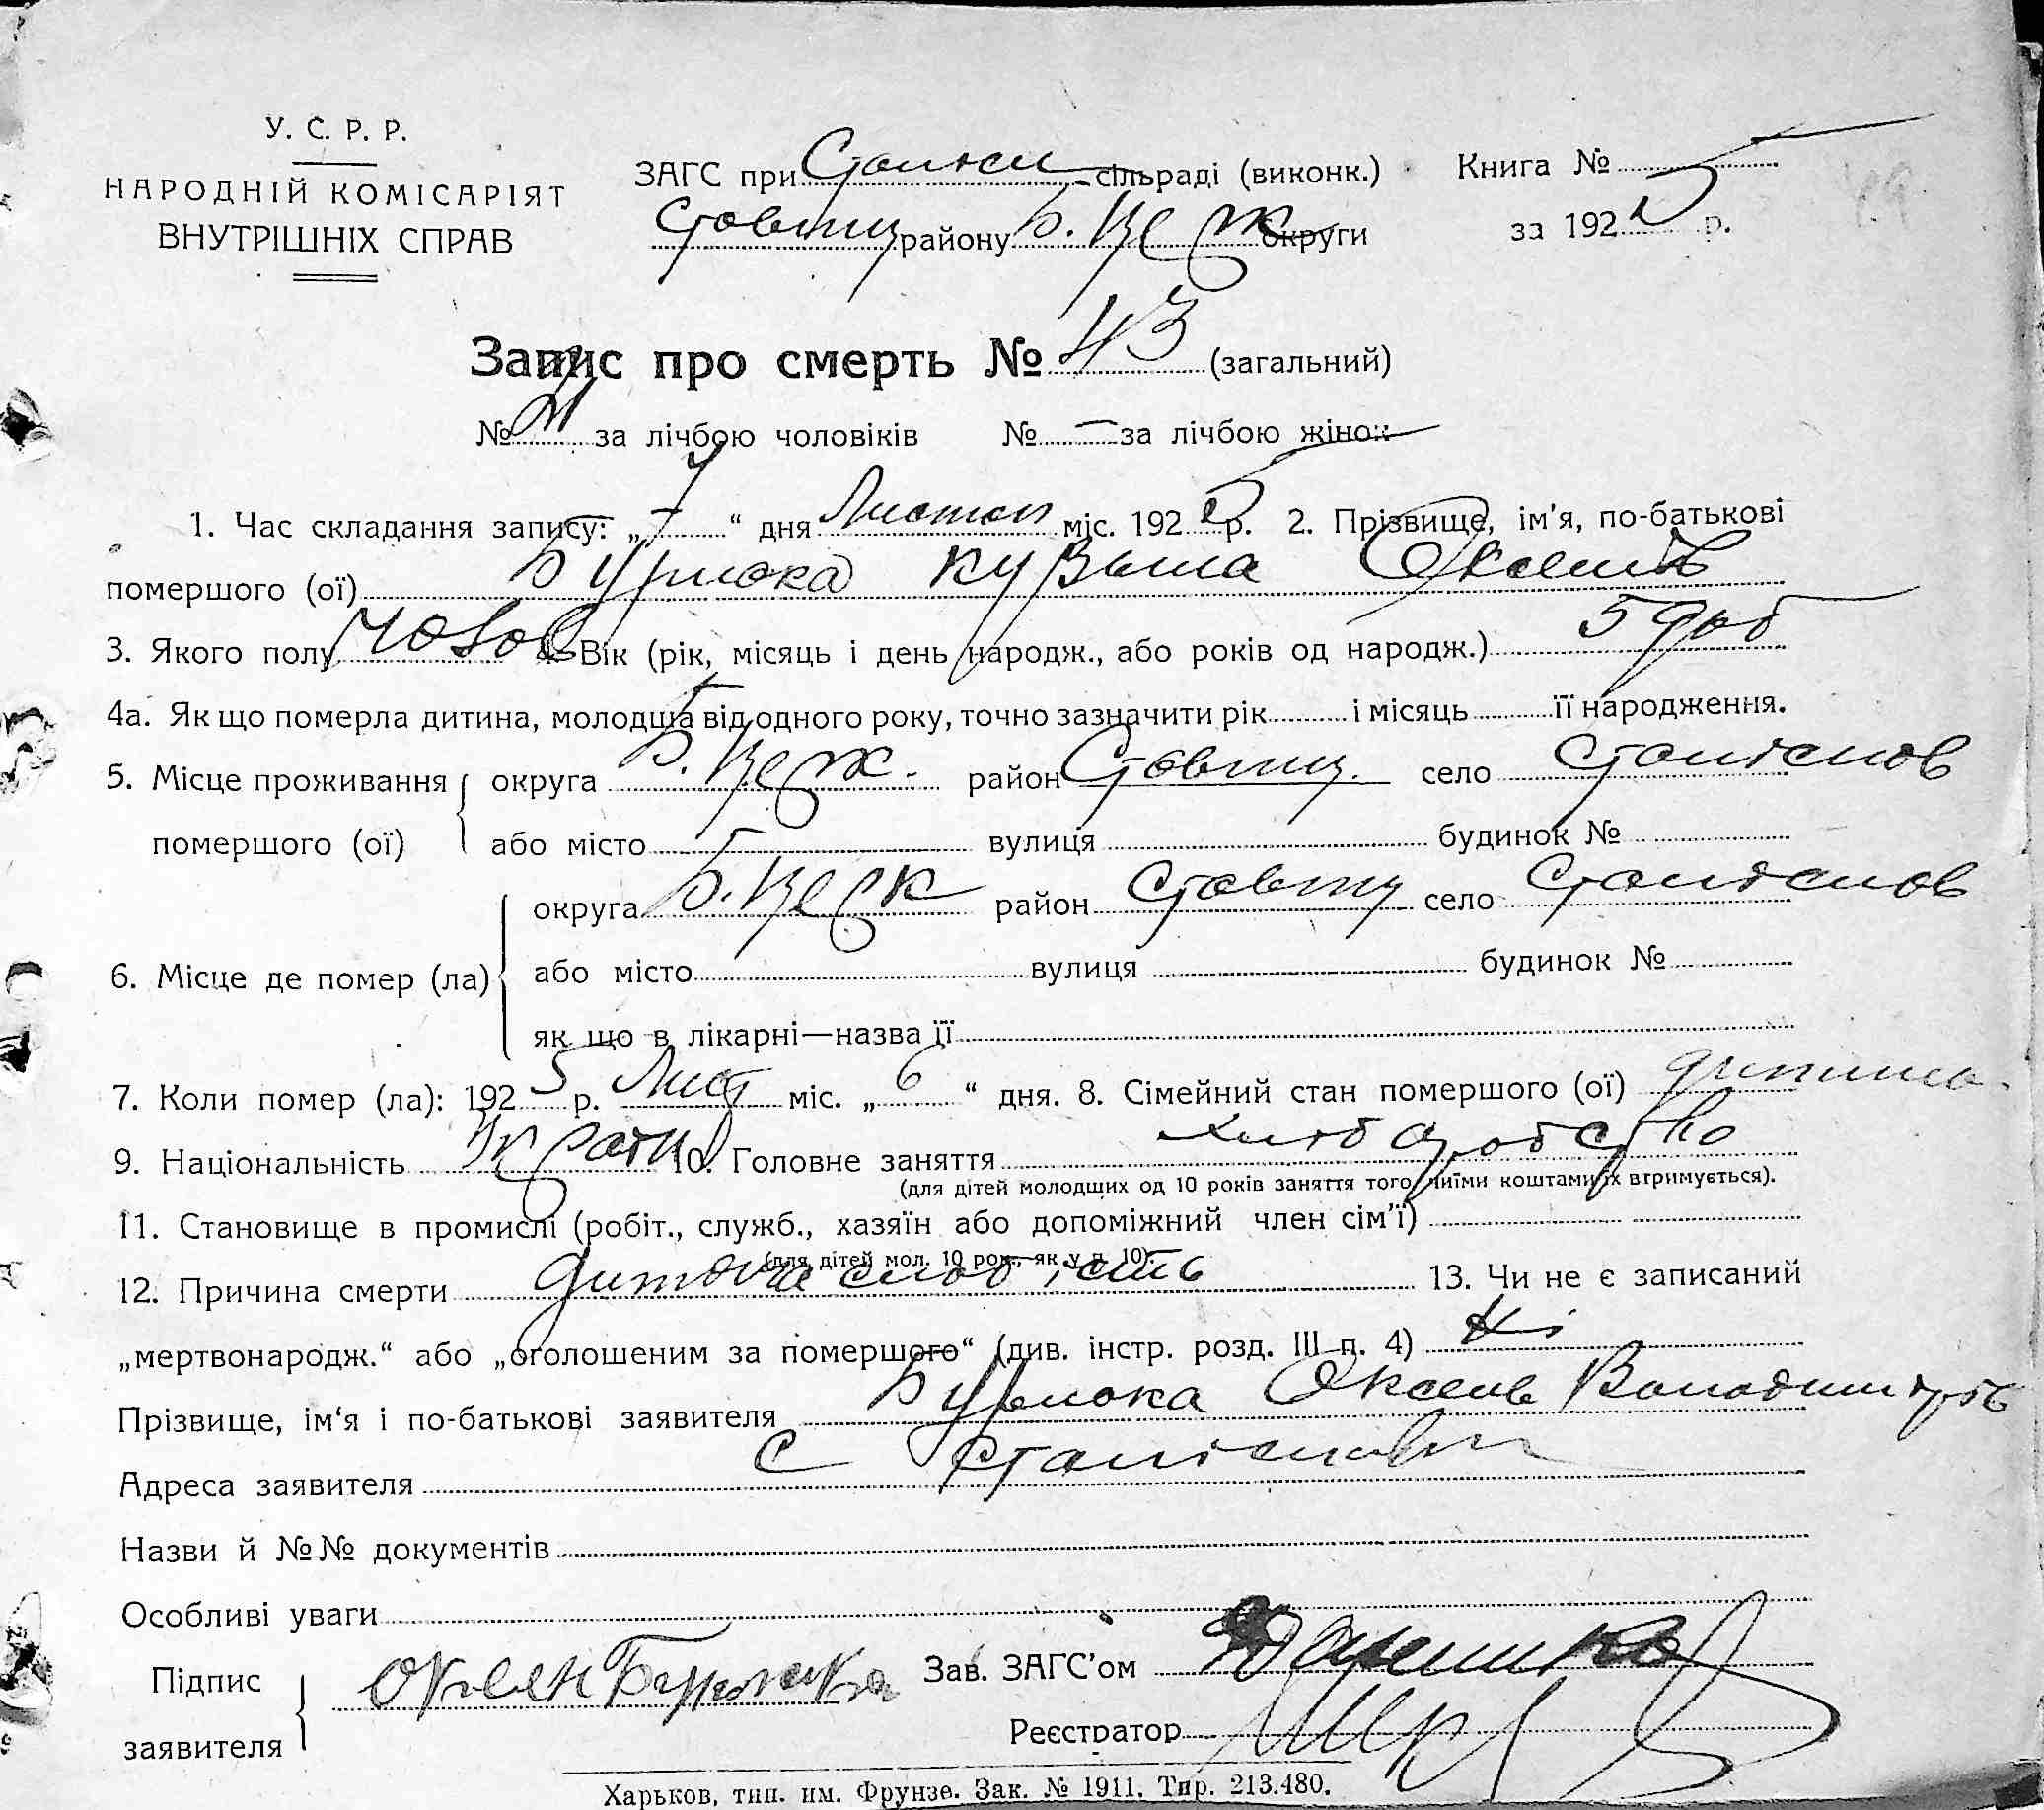 У. С. Р. Р.
НАРОДНІЙ КОМІСАРІЯТ
ВНУТРІШНІХ СПРАВ
ЗАГС при сільраді (виконк.)
Ставищ району Б. Церк округи
Книга №
за 1925 р.
Запис про смерть № 43 (загальний)
№ 21 за лічбою чоловіків № — за лічбою жінок
1. Час складання запису: „7“ дня Листоп міс. 1925 р. 2. Прізвище, ім'я, по-батькові
помершого (ої) Бурлюка Кузьма Оксентів
3. Якого полу чолов 4. Вік (рік, місяць і день народж., або років од народж.) 5 діб
4а. Як що померла дитина, молодша від одного року, точно зазначити рік і місяць її народження.
5. Місце проживання помершого (ої) округа Б. Церк. район Ставищ. село Станіслов
або місто вулиця будинок №
6. Місце де помер (ла) округа Б. Церк район Ставищ село Станіслов
або місто вулиця будинок №
як що в лікарні—назва її
7. Коли помер (ла): 1925 р. Лист міс. „6“ дня. 8. Сімейний стан помершого (ої) дитина
9. Національність Україн 10. Головне заняття хліборобство
(для дітей молодших од 10 років заняття того, чиїми коштами їх втримується).
11. Становище в промислі (робіт., служб., хазяїн або допоміжний член сім'ї)
(для дітей мол. 10 рок., як у п. 10).
12. Причина смерти дитяча слабість 13. Чи не є записаний
„мертвонародж.“ або „оголошеним за помершого“ (див. інстр. розд. III п. 4) Ні
Прізвище, ім'я і по-батькові заявителя Бурлюка Оксень Володимирів
Адреса заявителя с
Назви й №№ документів
Особливі уваги
Підпис заявителя Оксен Бурлюка
Зав. ЗАГС'ом
Реєстратор
Харьков, тип. им. Фрунзе. Зак. № 1911. Тир. 213.480.